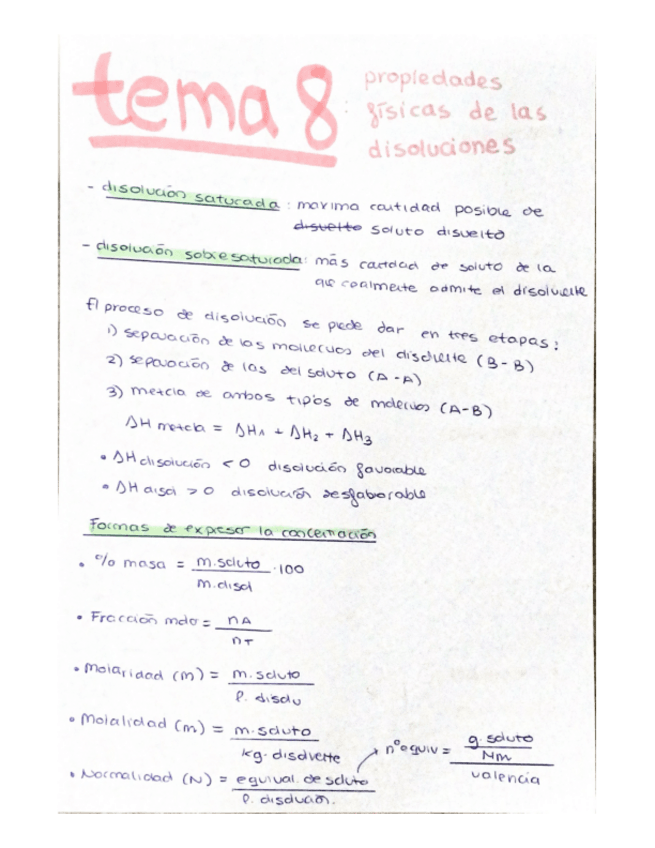 tema 8: propiedades
físicas de las
disoluciones
- disolución saturada: maxima cantidad posible de
disuelto soluto disuelto
- disolución sobresaturada: más cantidad de soluto de la
que realmente admite el disolvente
El proceso de disolución se puede dar en tres etapas:
1) separación de las moléculas del disolvente (B-B)
2) separación de las del soluto (A-A)
3) mezcla de ambos tipos de moléculas (A-B)
ΔH mezcla = ΔH1 + ΔH2 + ΔH3
• ΔH disolución < 0 disolución favorable
• ΔH disol > 0 disolución desfaborable
Formas de expresar la concentración
• % masa = m.soluto / m.disol · 100
• Fracción molar = nA / nT
• Molaridad (M) = m.soluto / l. disolu
• Molalidad (m) = m.soluto / kg. disolvente
• Normalidad (N) = equival. de soluto / l. disolución. → nº equiv = g. soluto / Nm / valencia